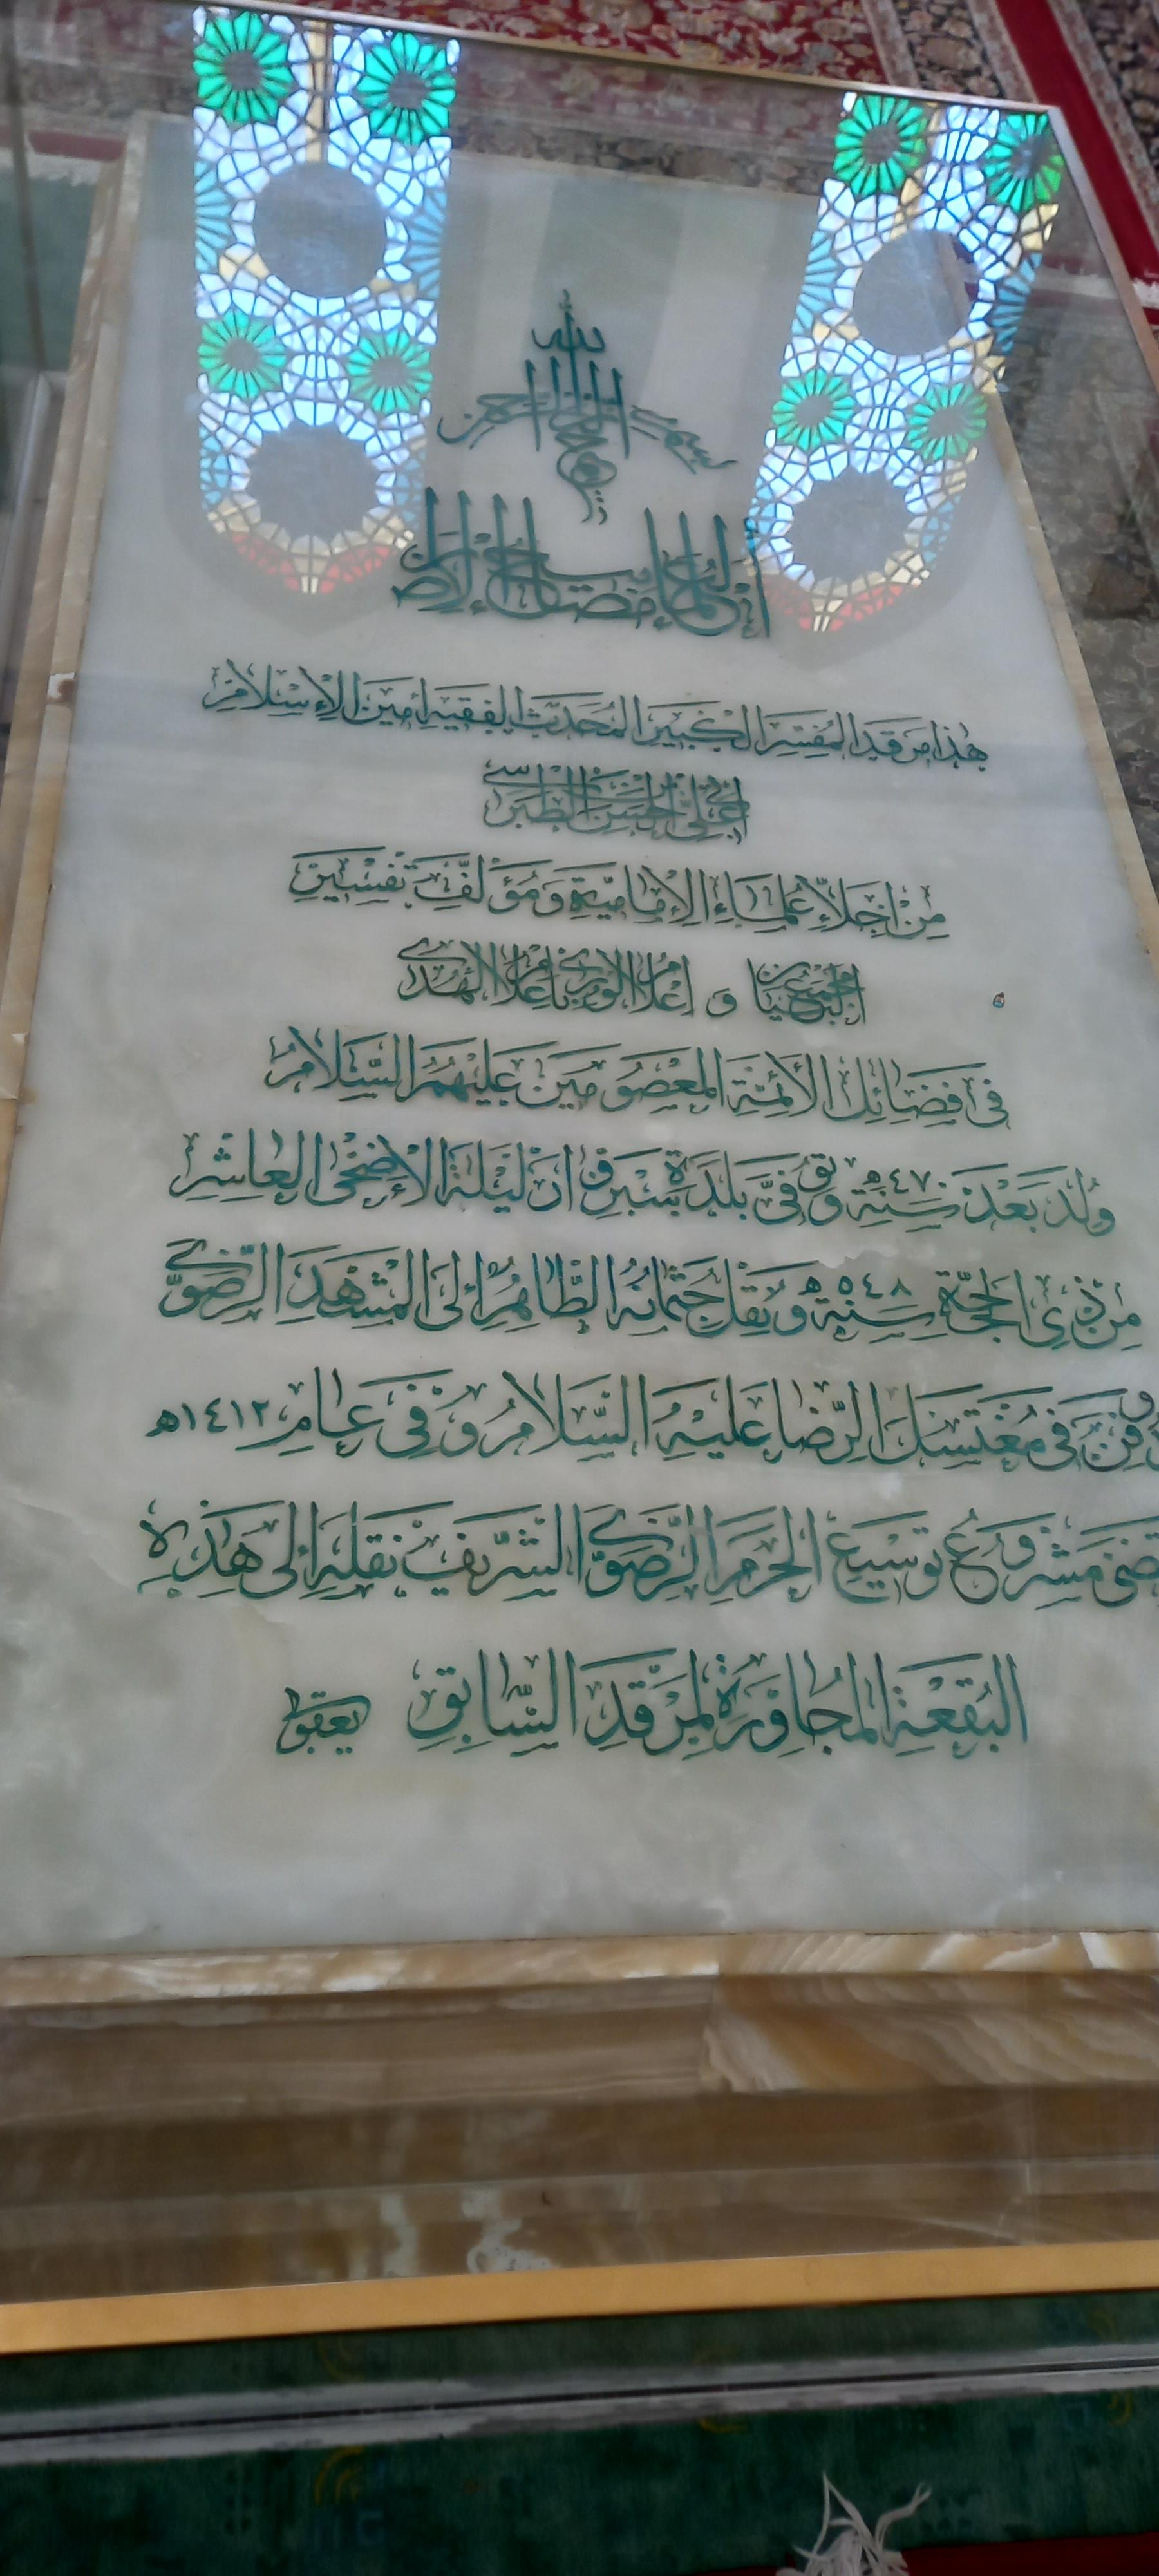 بسم الله الرحمن الرحيم
إن العلماء مصابيح الأرض
هٰذا مَرقَدُ المُفَسِّرِ الكَبيرِ المُحَدِّثِ الفَقيهِ أمينِ الإِسْلامِ
أبي عَلِيٍّ الحَسَنِ الطَّبَرْسي
مِنْ أَجِلَّاءِ عُلَمَاءِ الإِمَامِيَّةِ وَمُؤَلِّفِ تَفْسِيرِ
مجمع البيان و إعلام الورى بأعلام الهدى
فى فَضَائِلِ الأَئِمَّةِ المَعْصُومينَ عَلَيْهِمُ السَّلامُ
وُلِدَ بَعْدَ سَنَةِ ٤٧٠ه وَتُوُفِّيَ بَلْدَةِ سَبْزِوٰانَ لَيْلَةَ الأَضْحَى العَاشِرِ
مِنْ ذِى الحَجَّةِ سَنَةِ ٥٤٨ه وَنُقِلَ جُثْمَانُهُ الطَّاهِرُ إلَى المَشْهَدِ الرَّضَوِيِّ
وَدُفِنَ فى مُغْتَسَلِ الرِّضَا عَلَيْهِ السَّلَامُ وَفى عَامِ ١٤١٢ه
مَشْرُوعُ تَوْسِيعِ الحَرَمِ الرَّضَوِيِّ الشَّرِيفِ نَقْلَهُ إلى هَذِهِ
البُقْعَةِ المُجَاوِرَةِ لِمَرْقَدِهِ السَّابِقِ يعقوبى